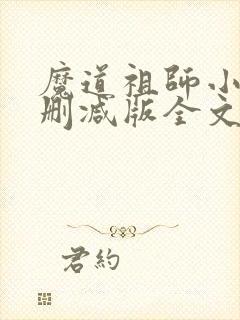 魔道祖師小
刪減版全文
君約